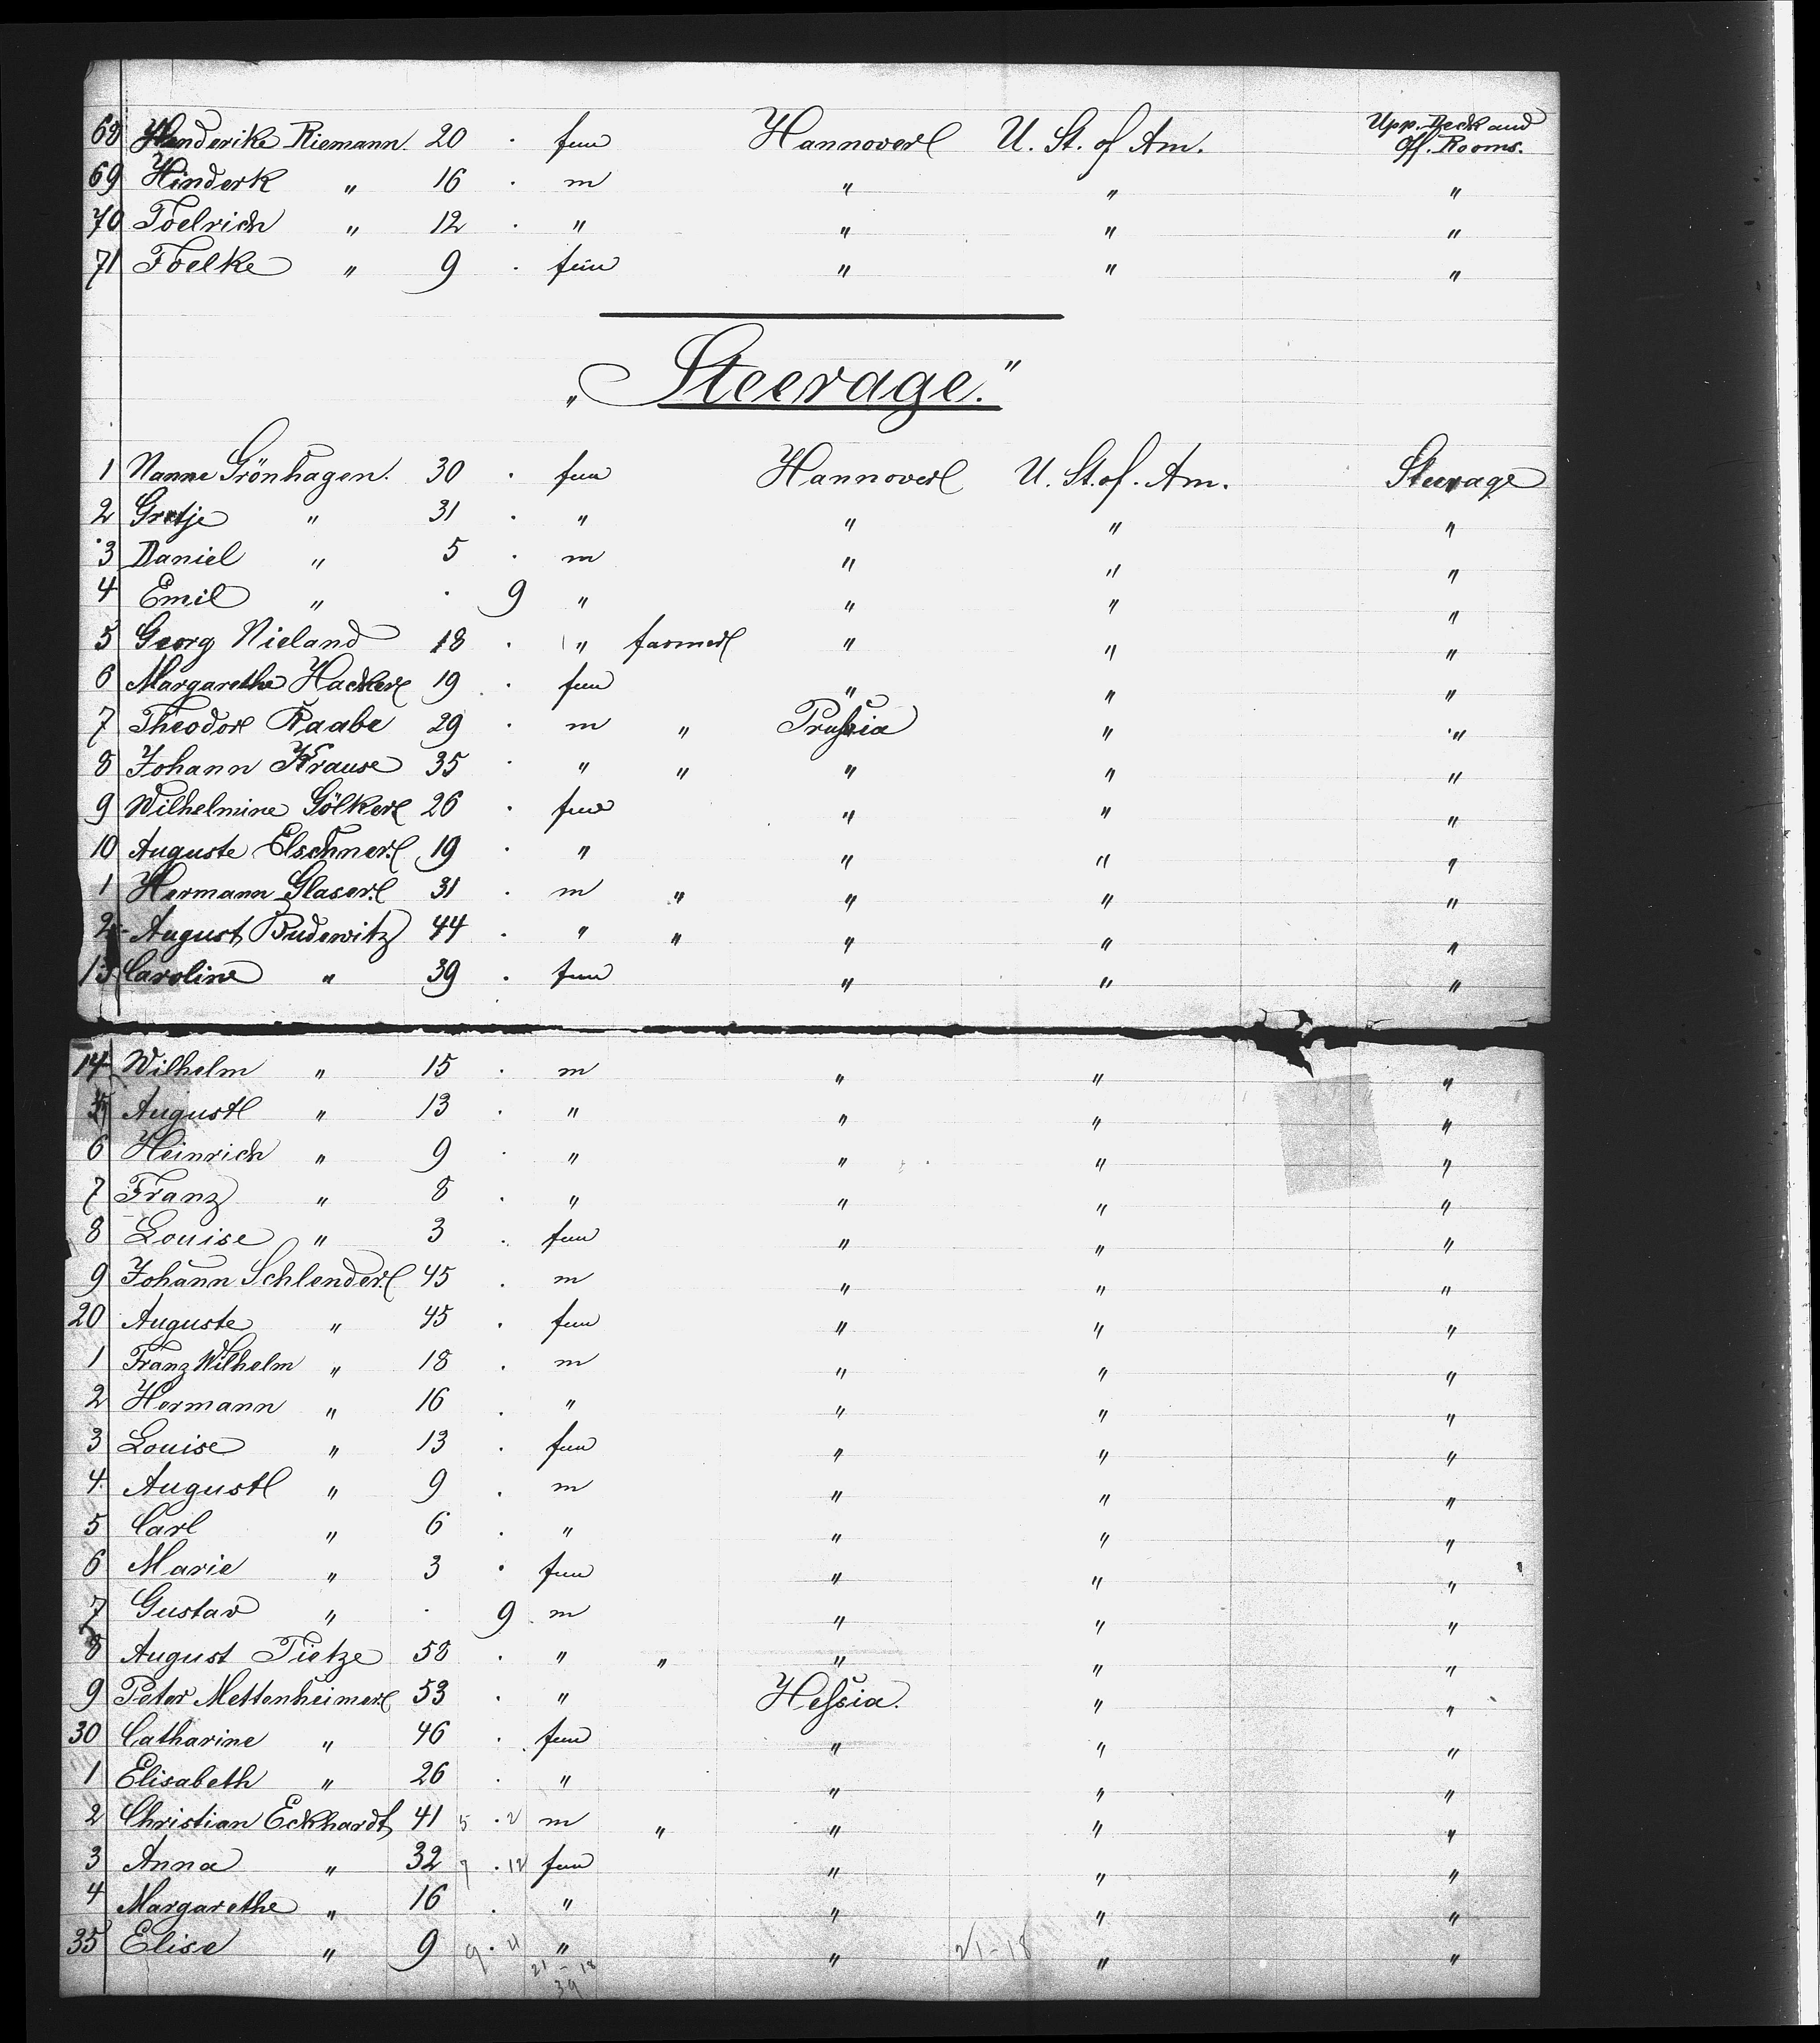 68 Henderike Riemann. 20 . fem Hannover U. St. of Am. Upp. Deck and Off. Rooms.
69 Hinderk " 16 . m " " "
70 Toelrich " 12 . " " " "
71 Foelke " 9 . fem " " "
„Steerage."
1 Nanne Grönhagen. 30 . fem Hannover U. St. of. Am. Steerage
2 Gretje " 31 . " " " "
3 Daniel " 5 . m " " "
4 Emil " . 9 " " " "
5 Georg Nieland 18 . " farmer " " "
6 Margarethe Hacker 19 . fem " " "
7 Theodor Raabe 29 . m " Prussia " "
8 Johann Krause 35 . " " " " "
9 Wilhelmine Gölker 26 . fem " " "
10 Auguste Elschner 19 . " " " "
1 Hermann Glaser. 31 . m " " " "
2 August Budewitz 44 . " " " " "
13 Caroline " 39 . fem " " "
14 Wilhelm " 15 . m " " "
5 August " 13 . " " " "
6 Heinrich " 9 . " " " "
7 Franz " 8 . " " " "
8 Louise " 3 . fem " " "
9 Johann Schlender. 45 . m " " "
20 Auguste " 45 . fem " " "
1 Franz Wilhelm " 18 . m " " "
2 Hermann " 16 . " " " "
3 Louise " 13 . fem " " "
4 August " 9 . m " " "
5 Carl " 6 . " " " "
6 Marie " 3 . fem " " "
7 Gustav " . 9 m " " "
8 August Tietze 58 . " " " " "
9 Peter Mettenheimer 53 . " Hessia. " "
30 Catharine " 46 . fem " " "
1 Elisabeth " 26 . " " " "
2 Christian Eckhardt 41 5 . 2 m " " " "
3 Anna " 32 9 . 12 fem " " "
4 Margarethe " 16 . " " " "
35 Elise " 9 9 . 4 " " 21-18 " "
21 - 18
39